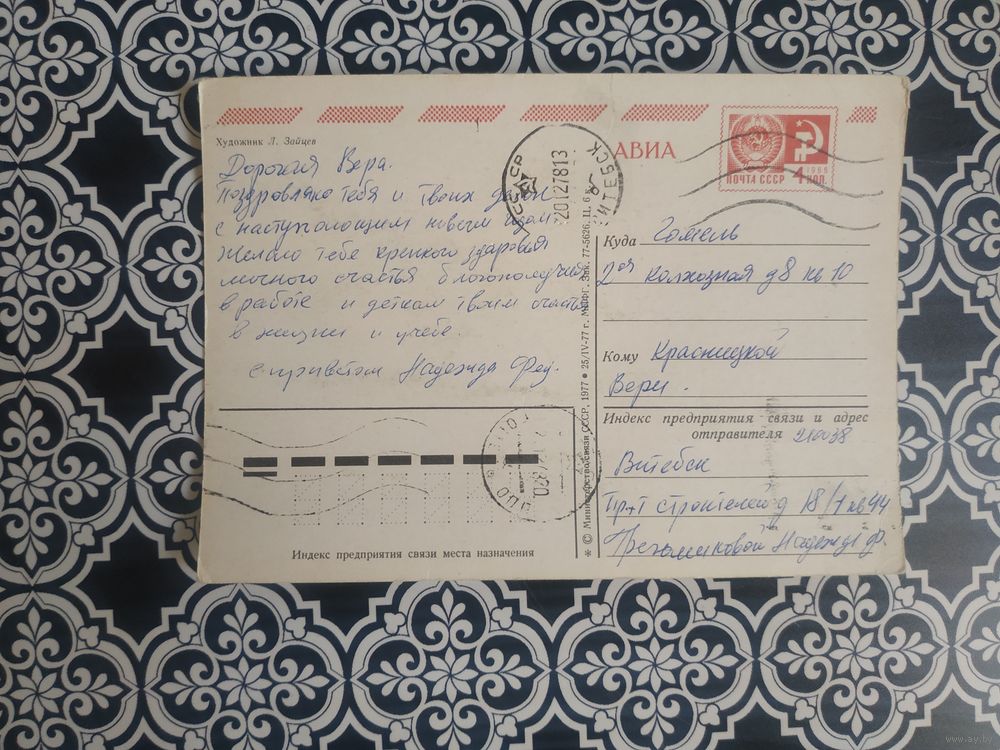 Художник Л. Зайцев
Дорогая Вера.
Поздравляю тебя и твоих деток
с наступающим новым годом
Желаю тебе крепкого здоровья
личного счастья благополучия
в работе и деткам твоим счастья
в жизни и учебе.
с приветом Надежда Фед.
Индекс предприятия связи места назначения
* © Министерство связи СССР, 1977 • 25/IV-77 г. МПФГ. Зак. 77-5626. Ц. 6 к.
СССР
20127813
ВИТЕБСК
АВИА
ПОЧТА СССР
1966
4 КОП.
Куда Гомель
2оя колхозная д8 кв 10
Кому Красницкой
Вери.
Индекс предприятия связи и адрес
отправителя 210038
Витебск
Пр-т строителей д 18/1 кв 44
Надежде ф.
www.ay.by